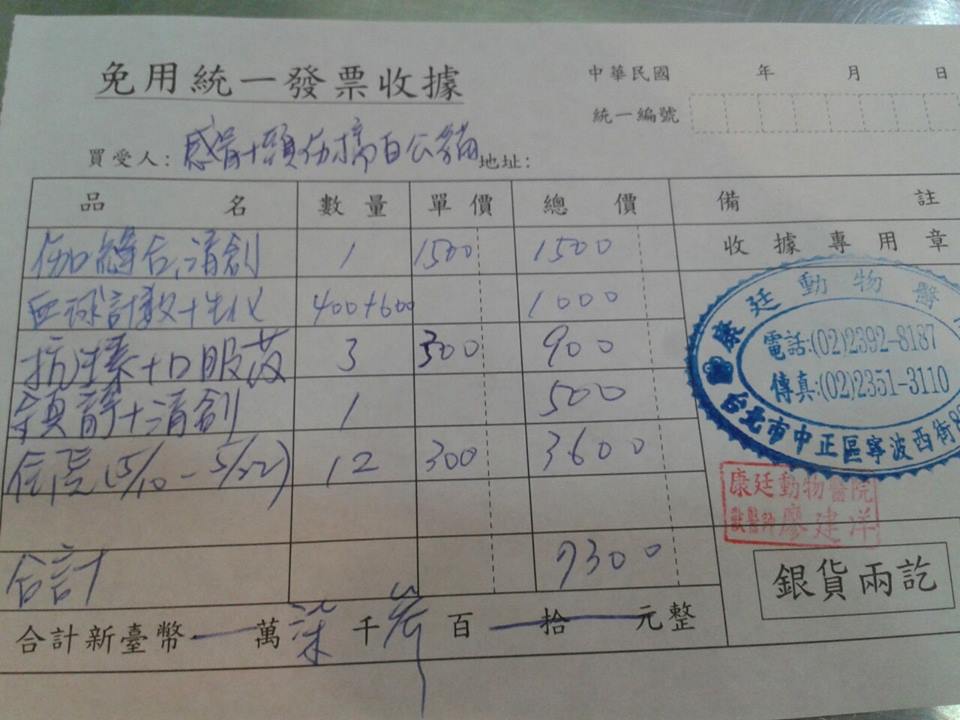 免用統一發票收據
中華民國 年 月 日
統一編號
買受人: 感冒+頭傷橘白公貓 地址:
品名 數量 單價 總價 備註
收據專用章
傷口縫合,清創 1 1500 1500
血球計數+生化 400+600 1000
抗生素+口服药 3 300 900
鎮靜+清創 1 500
住院(5/10-5/22) 12 300 3600
合計 7300
合計新臺幣 萬柒千叁百 拾 元整
康廷動物醫
電話:(02)2392-8187
傳真:(02)2351-3110
台北市中正區寧波西街
康廷動物醫院
獸醫師 廖建洋
銀貨兩訖